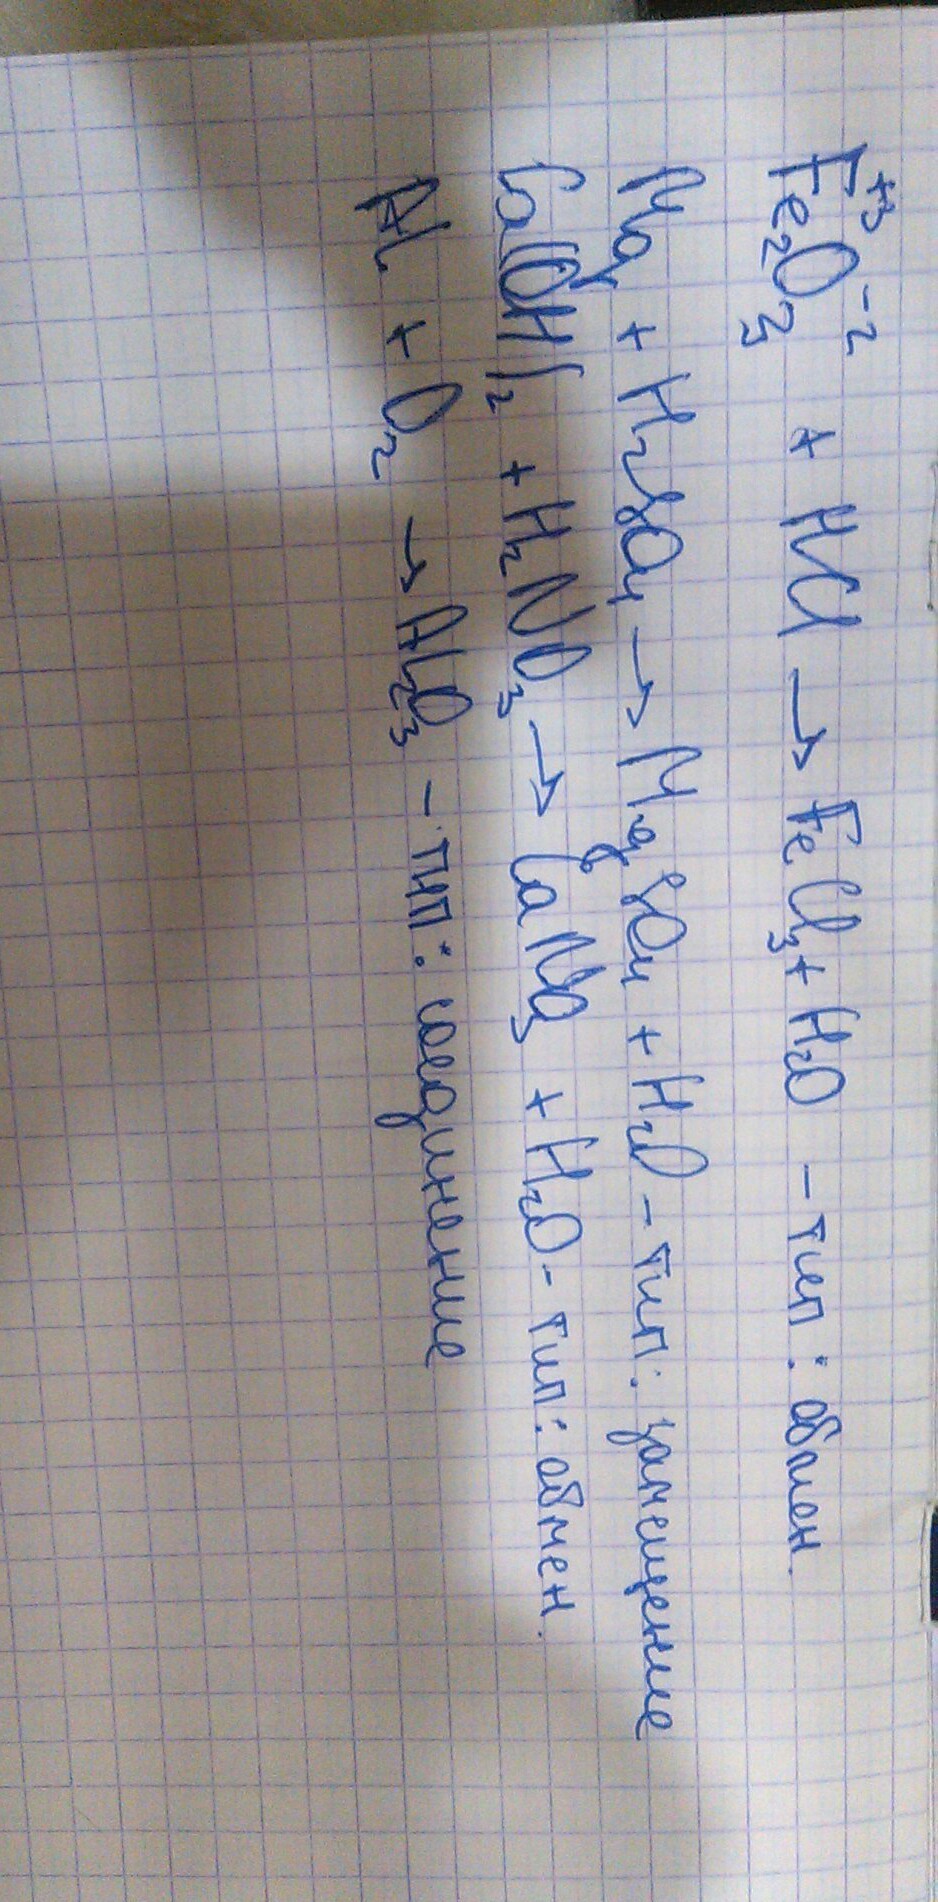 Fe₂⁺³O₃⁻² + HCl → FeCl₃ + H₂O - тип: обмен.
Mg + H₂SO₄ → MgSO₄ + H₂O - тип: замещение
Ca(OH)₂ + H₂NO₃ → CaNO₃ + H₂O - тип: обмен.
Al + O₂ → Al₂O₃ - тип: соединение